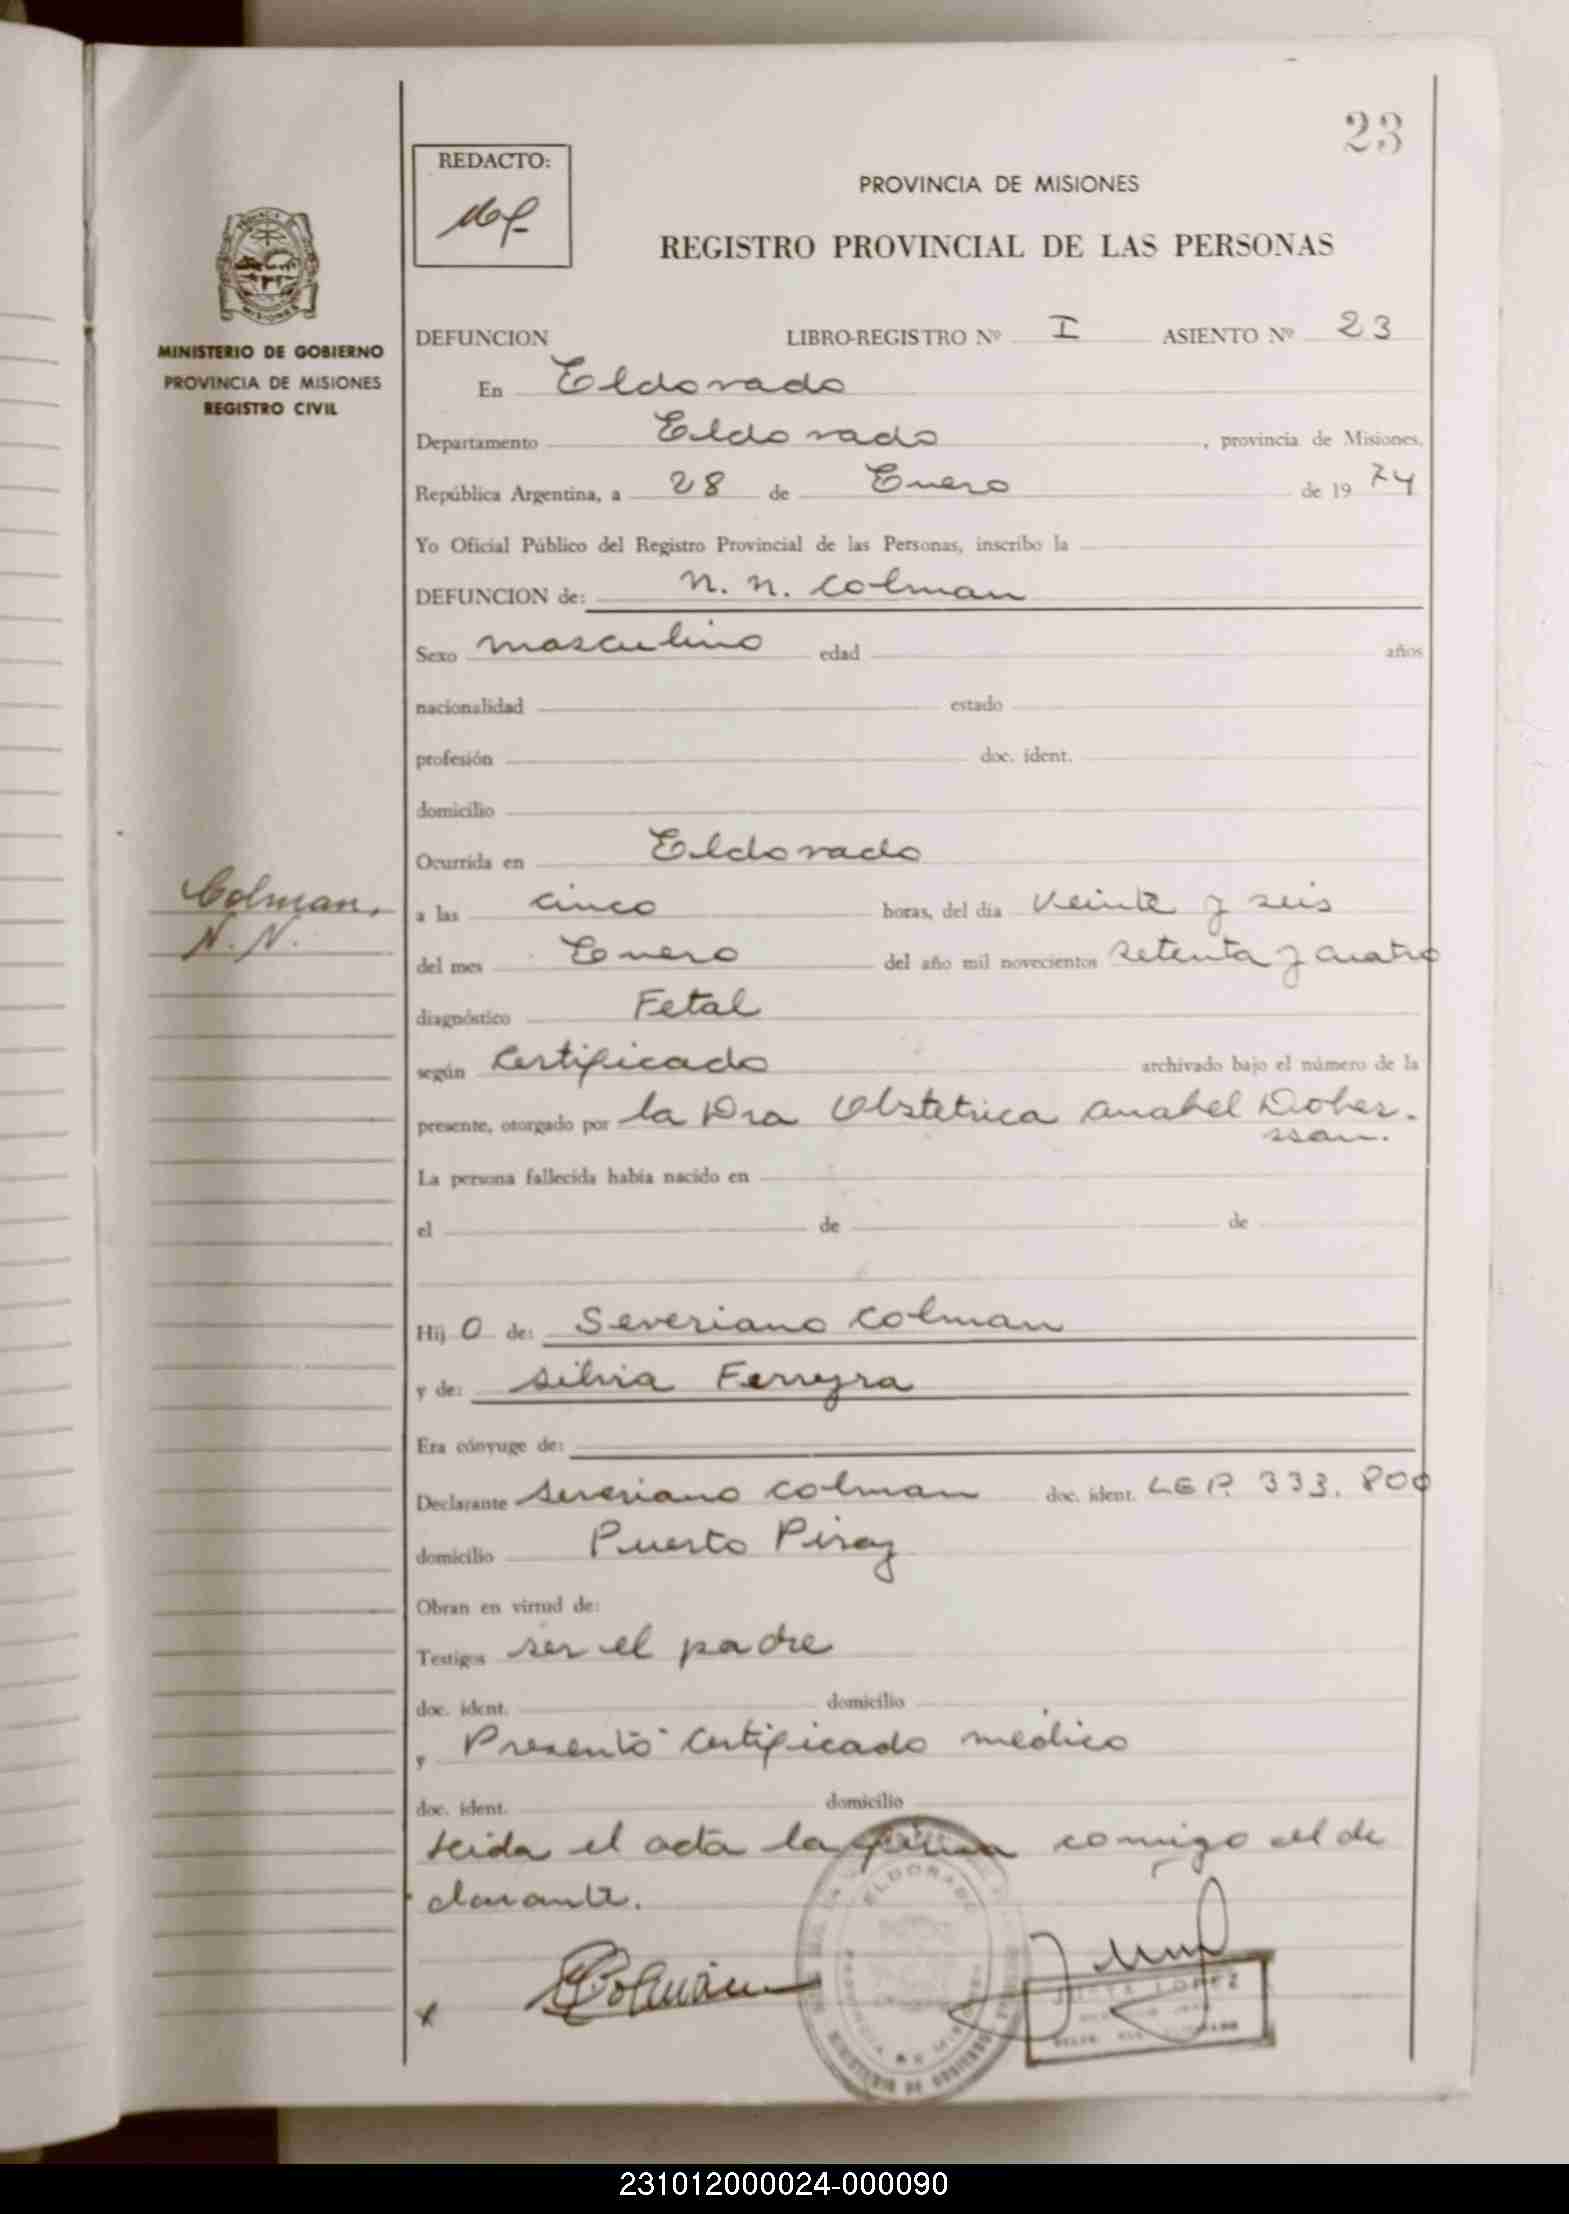 23
REDACTO:
PROVINCIA DE MISIONES
REGISTRO PROVINCIAL DE LAS PERSONAS
MINISTERIO DE GOBIERNO
PROVINCIA DE MISIONES
REGISTRO CIVIL
DEFUNCION LIBRO-REGISTRO Nº I ASIENTO Nº 23
En Eldorado
Departamento Eldorado, provincia de Misiones,
República Argentina, a 28 de Enero de 1974
Yo Oficial Público del Registro Provincial de las Personas, inscribo la
DEFUNCION de: N. N. Colman
Sexo masculino edad años
nacionalidad estado
profesión doc. ident.
domicilio
Ocurrida en Eldorado
Colman,
N. N.
a las cinco horas, del día veinte y seis
del mes Enero del año mil novecientos setenta y cuatro
diagnóstico Fetal
según Certificado archivado bajo el número de la
presente, otorgado por la Dra Obstetrica Anabel Dober-
ssan.
La persona fallecida había nacido en
el de de
Hij o de: Severiano Colman
y de: Silvia Ferreyra
Era cónyuge de:
Declarante Severiano Colman doc. ident. LEP. 333.800
domicilio Puerto Piray
Obran en virtud de:
Testigos ser el padre
doc. ident. domicilio
y Presentó certificado médico
doc. ident. domicilio
Leida el acta la firma comigo el de
clarante.
Colmán
ELDORADO
MINISTERIO DE GOBIERNO
LOPEZ
231012000024-000090